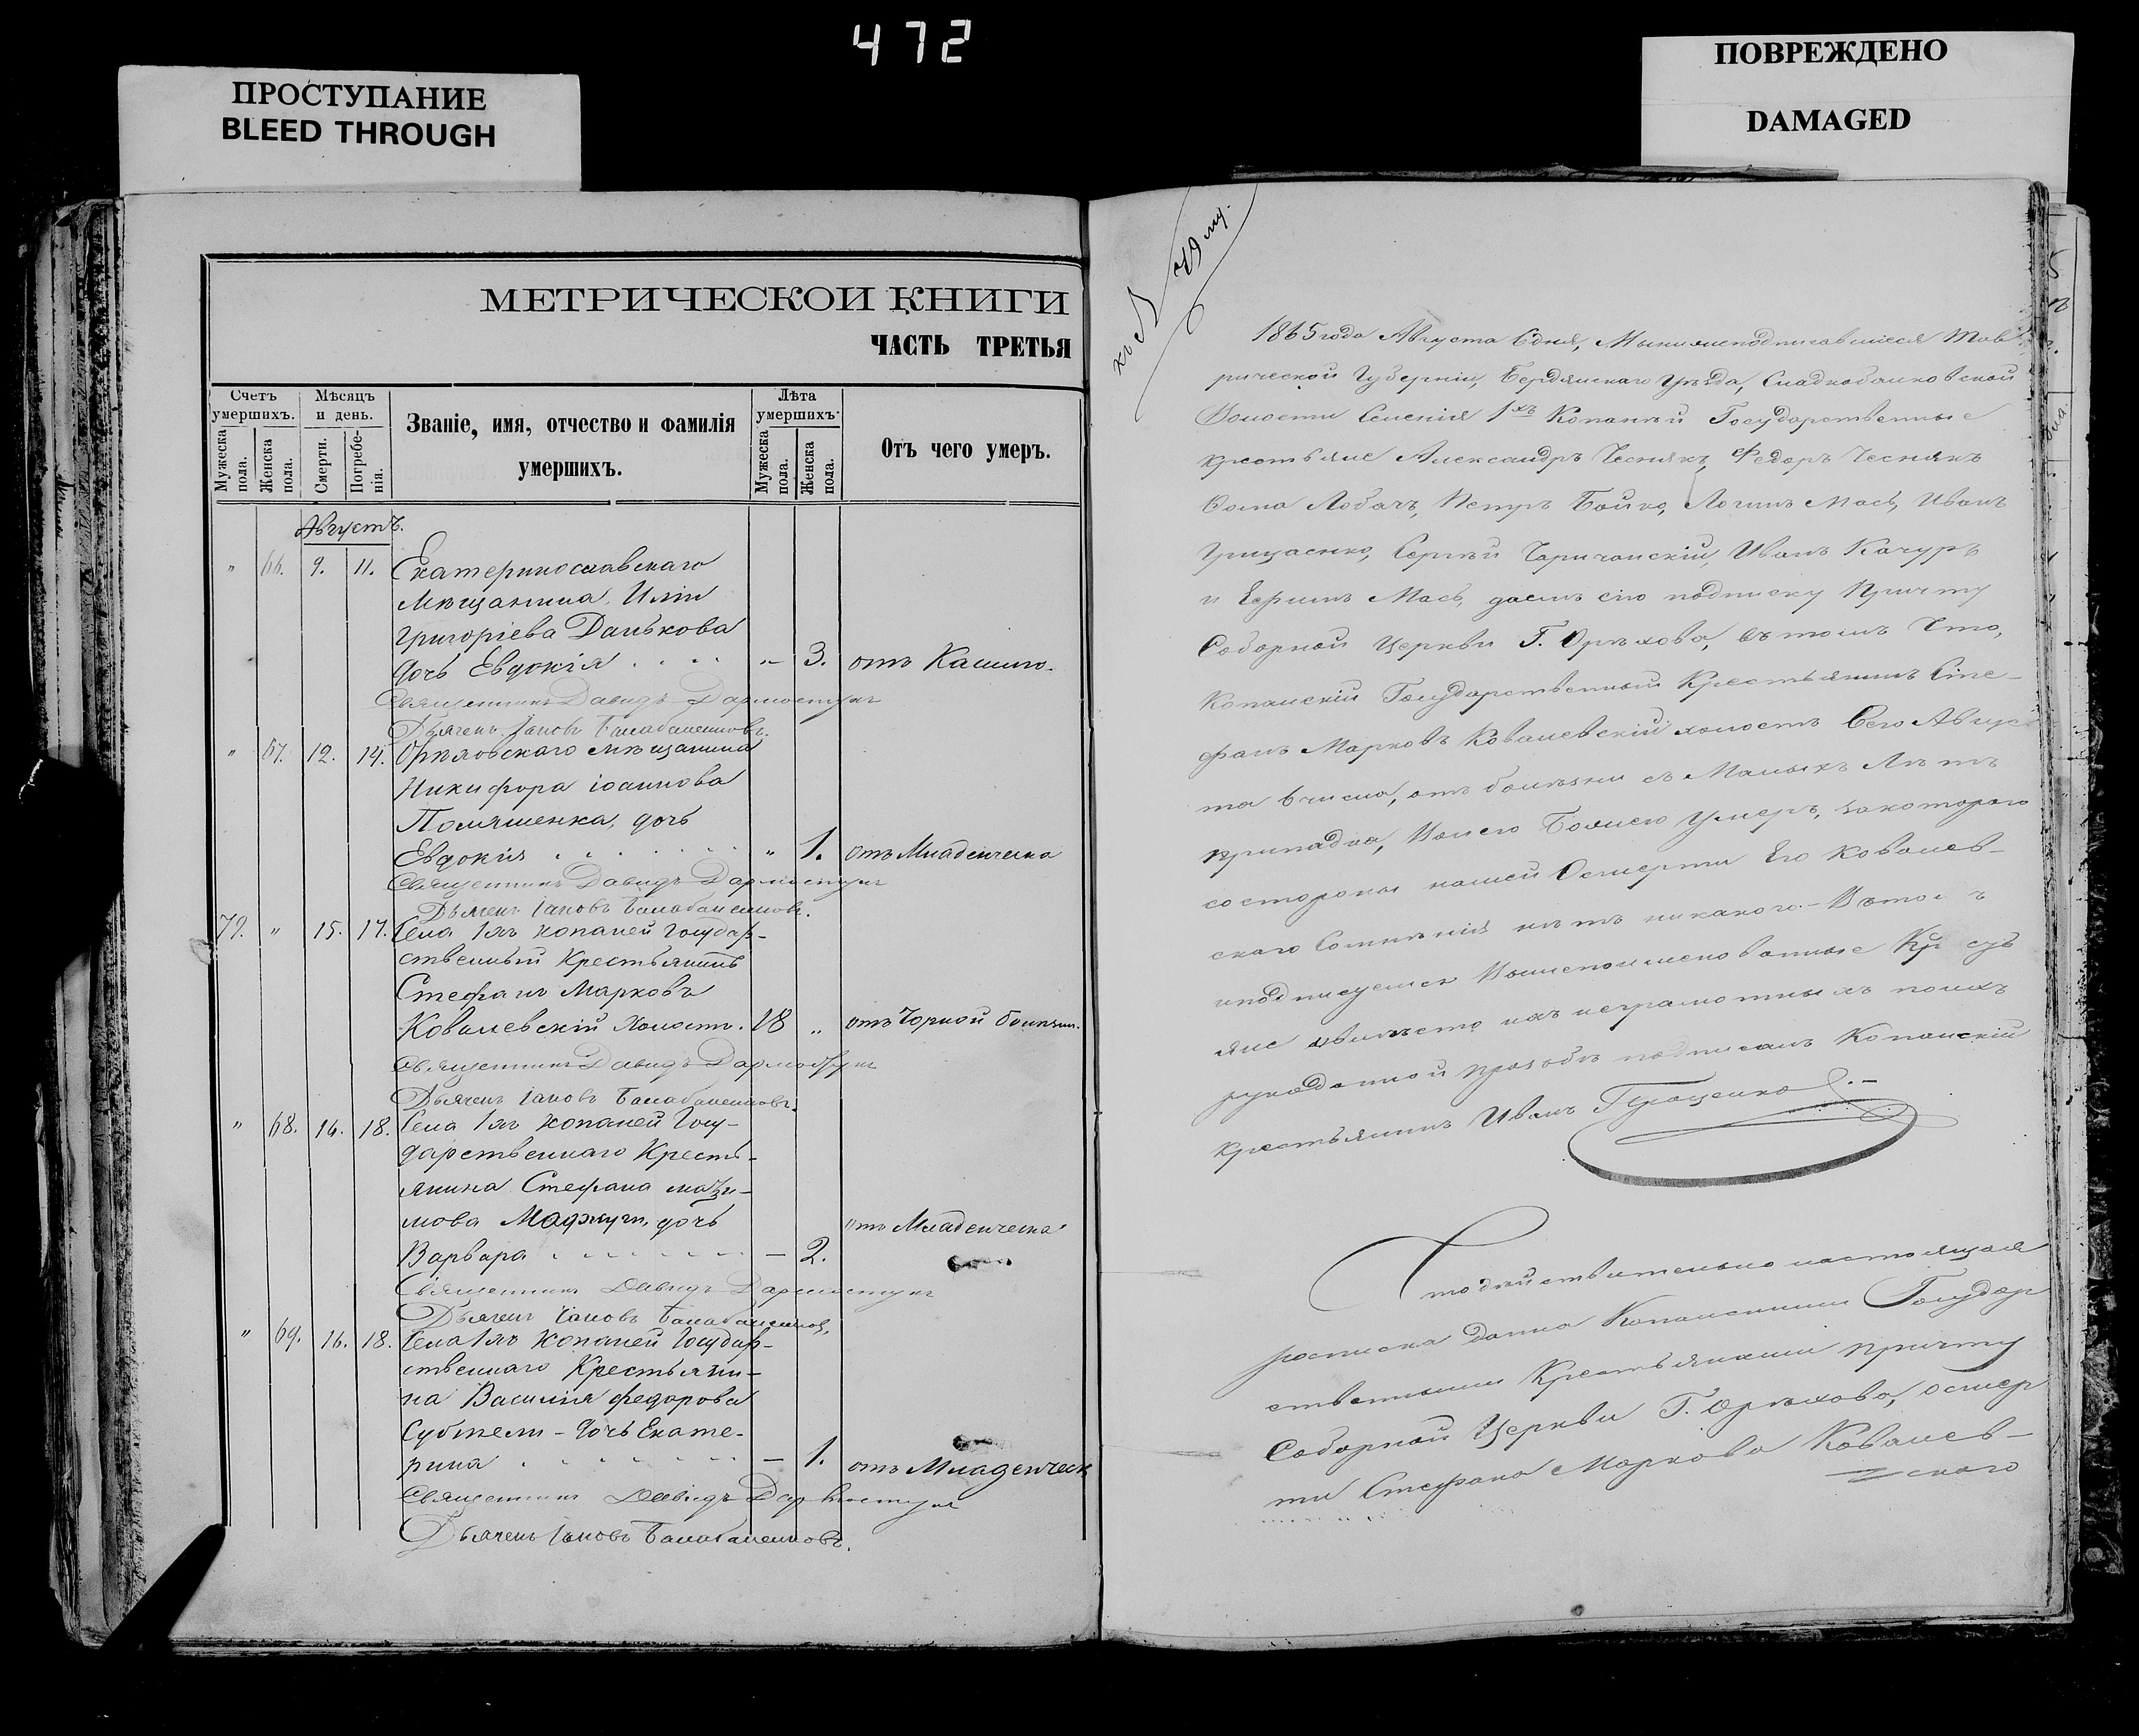 472
ПРОСТУПАНИЕ
BLEED THROUGH
ПОВРЕЖДЕНО
DAMAGED
МЕТРИЧЕСКОЙ КНИГИ
ЧАСТЬ ТРЕТЬЯ
Счетъ умершихъ.
Мужеска пола.
Женска пола.
Мѣсяцъ и день.
Смерти.
Погребенія.
Званіе, имя, отчество и фамилія
умершихъ.
Лѣта умершихъ.
Мужеска пола.
Женска пола.
Отъ чего умеръ.
Августъ.
" 66. 9. 11. Екатеринославскаго
мѣщанина Иліи
Григоріева Данькова
дочь Евдокія . . . . „ 3. отъ Кашлю.
Священникъ Давидъ Дармостукъ
Дьячекъ Іаковъ Балабаненковъ.
" 67. 12. 14. Орѣховскаго мѣщанина
Никифора Іоаннова
Помяшенка, дочь
Евдокія . . . . . . " 1. отъ Младенческа
Священникъ Давидъ Дармостукъ
Дьячекъ Іаковъ Балабаненковъ.
79. " 15. 17. Села 1хъ Копаней Государ-
ственный Крестьянинъ
Стефанъ Марковъ
Ковалевскій Холостъ. 18 „ отъ Чорной болѣзни.
Священникъ Давидъ Дармостукъ
Дьячекъ Іаковъ Балабаненковъ.
" 68. 16. 18. Села 1хъ Копаней Госу-
дарственнаго Кресть-
янина Стефана
дочь отъ Младенческа
Варвара . . . . . . – 2.
Священникъ Давидъ Дармостукъ
Дьячекъ Іаковъ Балабаненковъ.
" 69. 16. 18. Села 1хъ Копаней Государ-
ственнаго Крестьяни-
на Василія Федорова
Субтели – дочь Екате-
рина . . . . . . – 1. отъ Младенческ
Священникъ Давидъ Дармостукъ
Дьячекъ Іаковъ Балабаненковъ.
къ № 79 му.
1865 года Августа 6 дня, Мы нижеподписавшіеся Тав-
рической Губерніи, Бердянскаго Уѣзда,
Волости Селенія 1хъ Копаней Государственные
крестьяне Александръ Чеснякъ, Федоръ Чеснякъ
Фома Лобачъ, Петръ Бойко, Логинъ Мась, Иванъ
Грицаенко, Сергѣй Чаричанскій, Иванъ Качуръ
и Ефимъ Мась, даемъ сію подписку Причту
Соборной Церкви Г. Орѣхова, въ томъ что,
Копанскій Государственный Крестьянинъ Сте-
фанъ Марковъ Ковалевскій холостъ Сего Авгус
та 6 числа, отъ болѣзни съ Малыхъ Лѣтъ
припадка, Волею Божіею умеръ, закоторого
состороны нашей Осмерти Его Ковалев-
скаго Сомнѣнія нѣтъ никакого. – Въ
иподписуемся Вышепоименованные
яне авмѣсто ихъ неграмотныхъ поихъ
рукоданной прозьбѣ подписалъ Копанскій
крестьянинъ Иванъ
Что дѣйствительно настоящая
росписка данна Копанскими Государ
ственными Крестьянами причту
Соборной Церкви Г. Орѣхова, осмер
ти Стефана Маркова Ковалев-
скаго